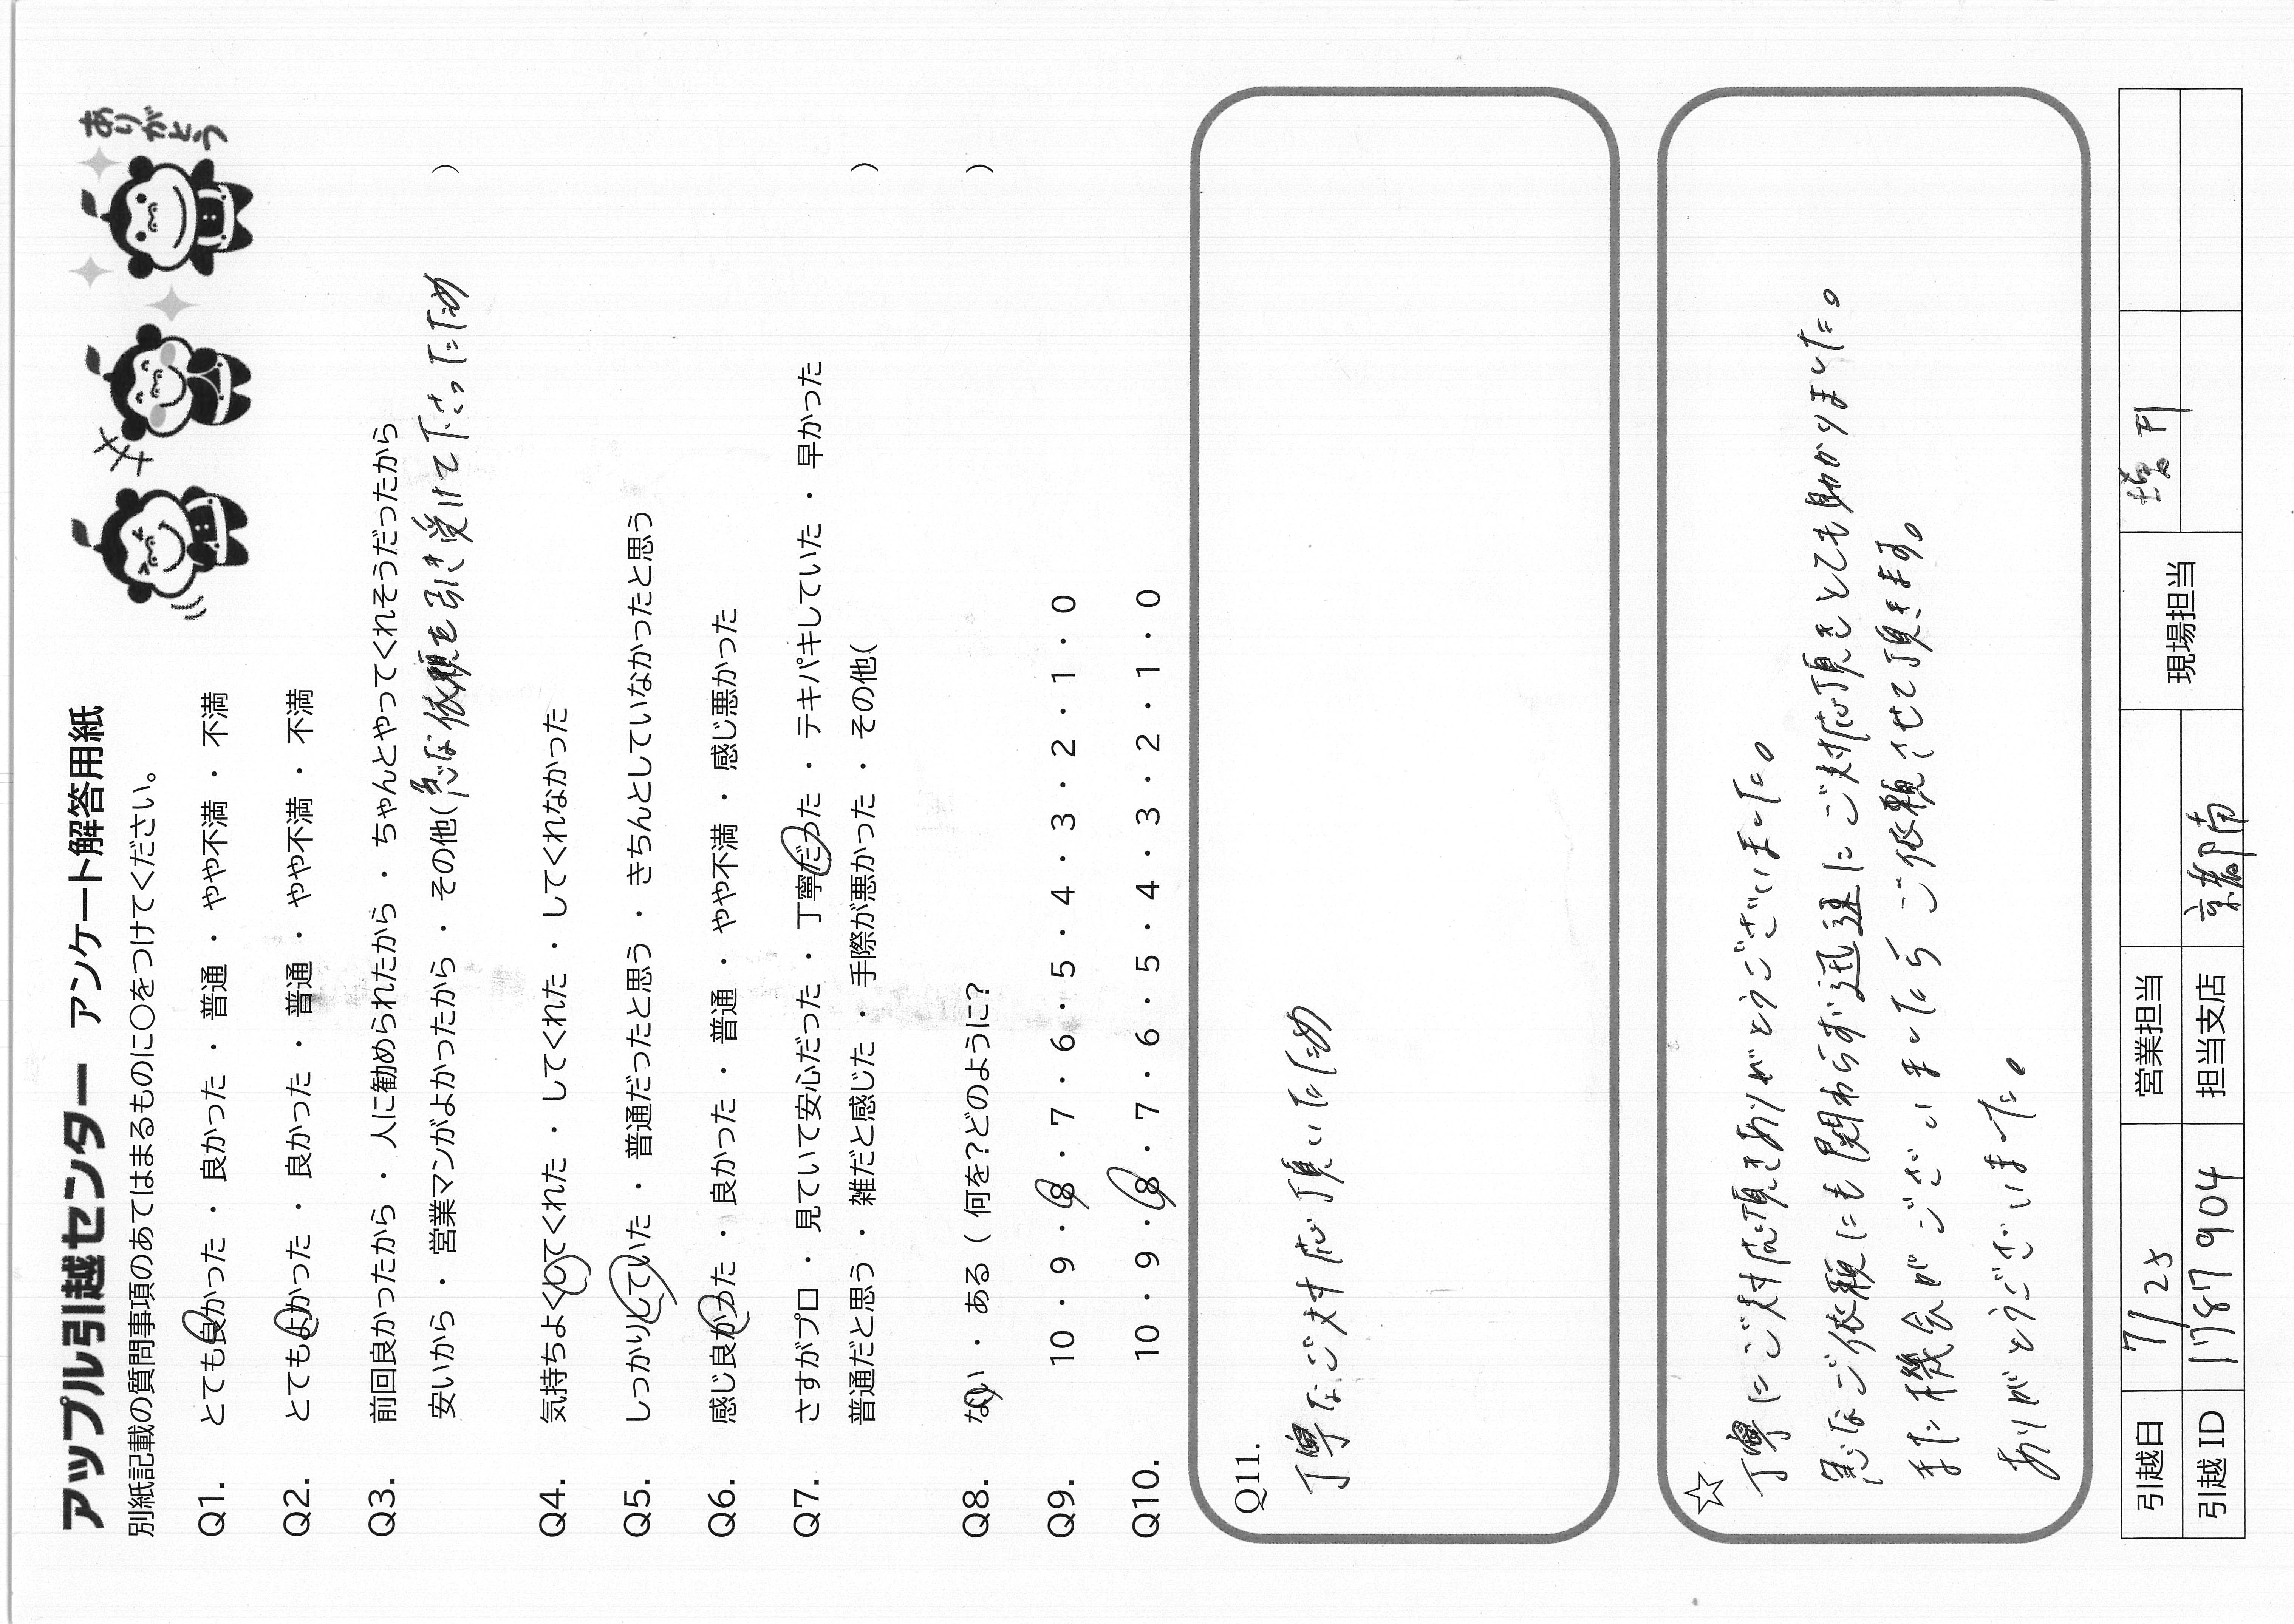 アップル引越センター アンケート解答用紙
ありがとう
別紙記載の質問事項のあてはまるものに○をつけてください。
Q1. とても良かった ・ 良かった ・ 普通 ・ やや不満 ・ 不満
Q2. とてもよかった ・ 良かった ・ 普通 ・ やや不満 ・ 不満
Q3. 前回良かったから ・ 人に勧められたから ・ ちゃんとやってくれそうだったから
安いから ・ 営業マンがよかったから ・ その他( 急な依頼を引き受けて下さったため )
Q4. 気持ちよくしてくれた ・ してくれた ・ してくれなかった
Q5. しっかりしていた ・ 普通だったと思う ・ きちんとしていなかったと思う
Q6. 感じ良かった ・ 良かった ・ 普通 ・ やや不満 ・ 感じ悪かった
Q7. さすがプロ ・ 見ていて安心だった ・ 丁寧だった ・ テキパキしていた ・ 早かった
普通だと思う ・ 雑だと感じた ・ 手際が悪かった ・ その他( )
Q8. ない ・ ある ( 何を?どのように? )
Q9. 10 ・ 9 ・ 8 ・ 7 ・ 6 ・ 5 ・ 4 ・ 3 ・ 2 ・ 1 ・ 0
Q10. 10 ・ 9 ・ 8 ・ 7 ・ 6 ・ 5 ・ 4 ・ 3 ・ 2 ・ 1 ・ 0
Q11.
丁寧なご対応頂いたため
☆
丁寧にご対応頂きありがとうございました。
急なご依頼にも関わらず迅速にご対応頂きとても助かりました。
また機会がございましたらご依頼させて頂きます。
ありがとうございました。
引越日 7/25 営業担当 現場担当
引越ID 1787904 担当支店 京都南